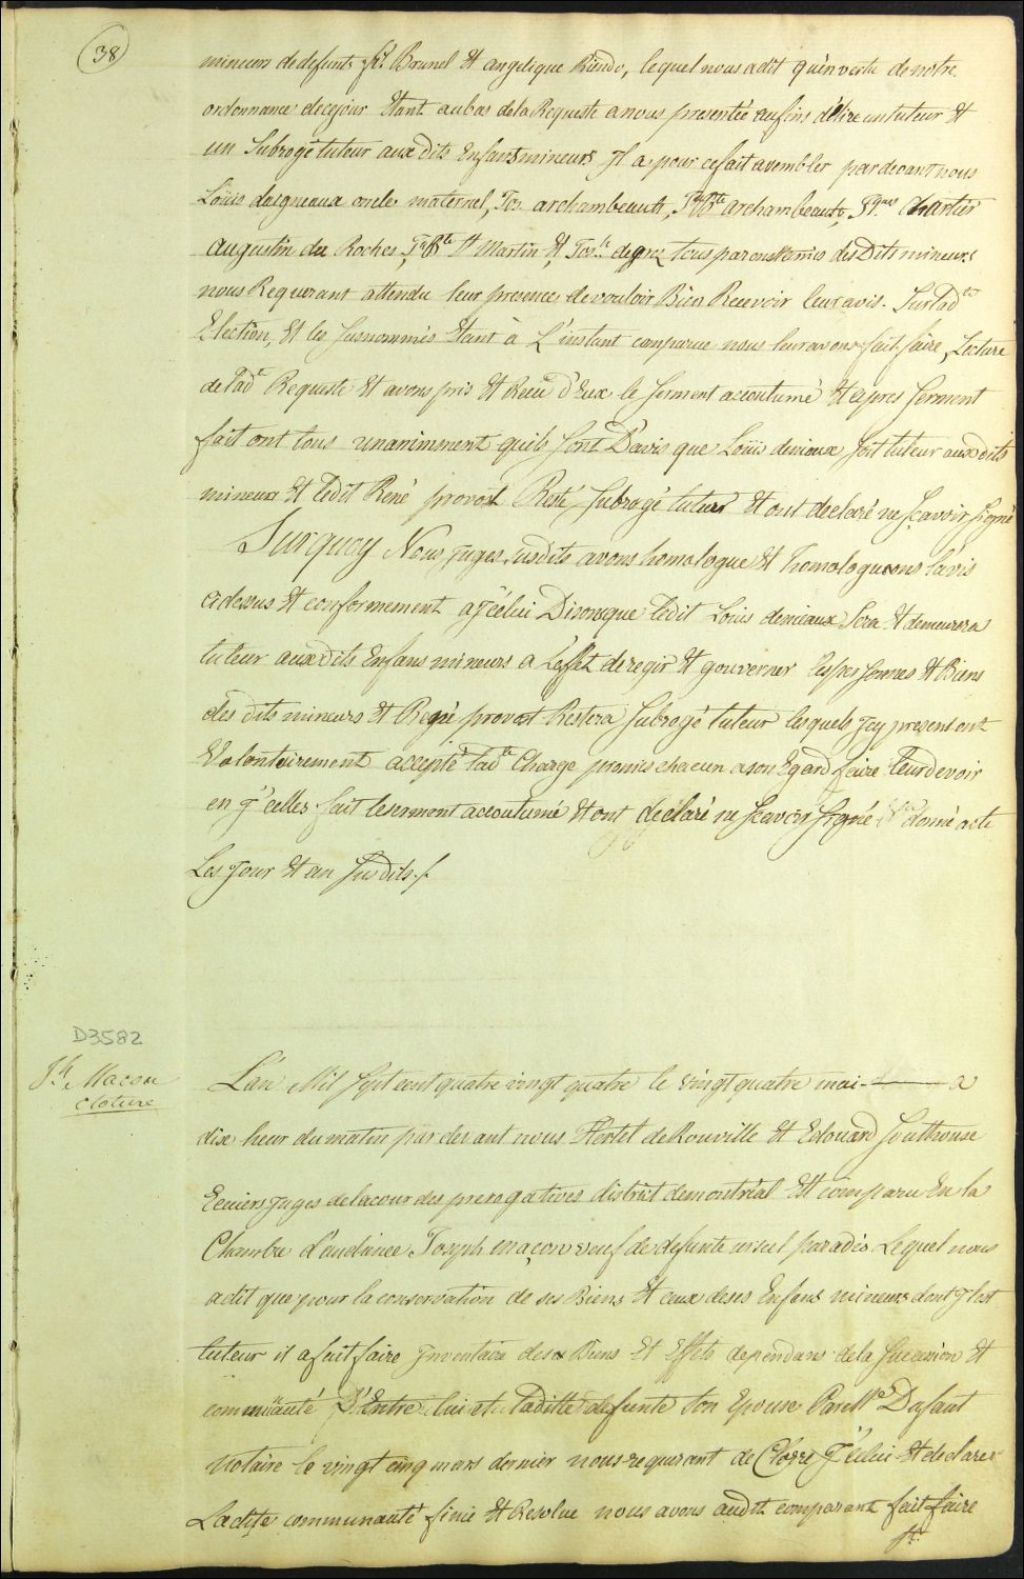 38
mineurs de defunts Brunel Et angelique Riendo, lequel nous adit qu'en vertu de notre
ordonnance decejour Etant aubas dela Requeste anous presentée aufins d'élire un tuteur Et
un Subrogé tuteur aux dits Enfants mineurs Jl a pour cefait assembler pardevant nous
Loüis daigneaux oncle maternel, Jos archambeault, J Bte archambeault, chartier
augustin du Roches, J Bte St Martin Et Josh tous parens &amis des Dits mineurs
nous Requerant attendu leur presence devouloir Bien Recevoir leur avis. Sur lad
Election, Et les susnommés Etant à L'instant comparue nous leur avons fait faire Lecture
de lade Requeste Et avons pris Et Reçu d'Eux le serment accoutumé Et apres serment
fait ont tous unanimment quils sont D'avis que Loüis deniaux soit tuteur aux dits
mineurs Et ledit René provost Resté subrogé tuteur Et ont declaré ne sçavoir signé
Surquoy Nous juges susdits avons homologue Et homologueons lavis
cidessus Et conformement a Jcelui Disons que ledit Loüis deniaux Sera Et demeurera
tuteur aux dits Enfans mineurs a L'effet deregir Et gouverner les personnes Et Biens
des dits mineurs Et René provost Restera subrogé tuteur lesquels Jcy present ont
Volontairement accepté lade Charge promis chacun ason Egard faire leur devoir
en J'celles fait leserment accoutumé Et ont declaré ne sçavoir signé donné acte
Les jour Et an susdits./.
D3582
Jh Macon
cloture
L'an Mil sept cent quatre vingt quatre le vingt quatre mai - a
dix heur du matin pardevant nous Hertel de Rouville Et Edouard Southouse
Ecuiers juges delacour des prerogatives district demontréal Est comparu En la
Chambre d'audiance Joseph maçon veuf de defunte paradis Lequel nous
adit que pour la conservation de ses Biens Et ceux deses Enfans mineurs dont Jl est
tuteur il a fait faire Jnventaire deses Biens Et Effets dependans dela succession Et
communauté D'Entre lui et Laditte defunte son Epouse Par Me Dufaut
Notaire le vingt cinq mars dernier nous requerant de Clorre J'celui Et declarer
Ladite communauté finie Et Resolue nous avons audit comparant fait faire